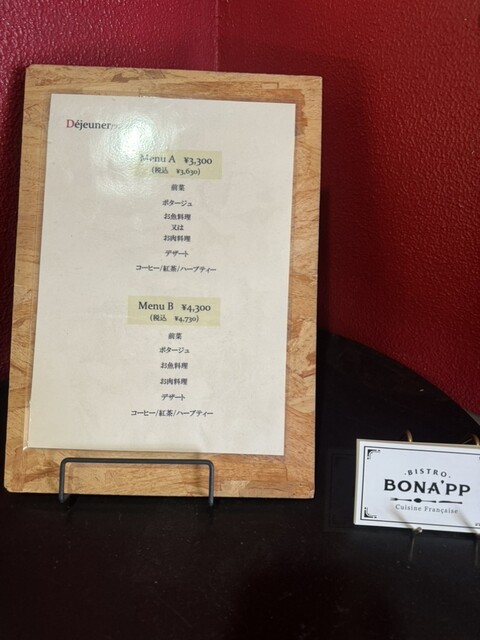 Déjeuner
Menu A ¥3,300
(税込 ¥3,630)
前菜
ポタージュ
お魚料理
又は
お肉料理
デザート
コーヒー/紅茶/ハーブティー
Menu B ¥4,300
(税込 ¥4,730)
前菜
ポタージュ
お魚料理
お肉料理
デザート
コーヒー/紅茶/ハーブティー
·BISTRO·
BONA'PP
Cuisine Française